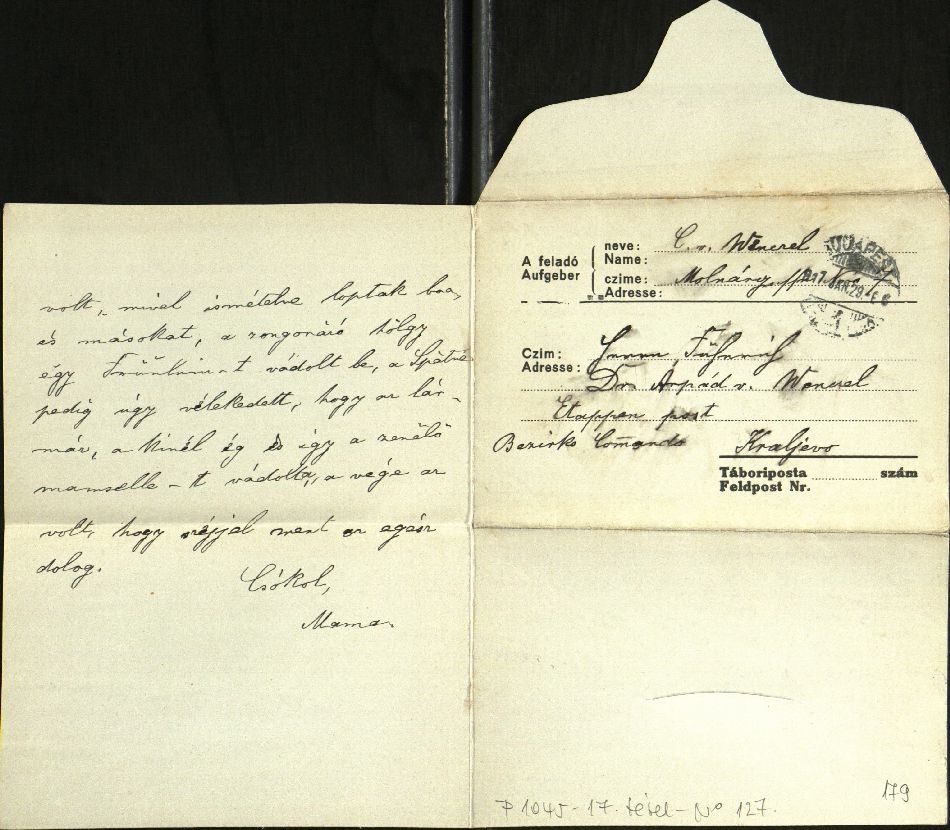 volt, mivel ismételve loptak
és másokat, a zongorázó hölgy
égy Fräulein-t vádolt be, a Spätné
pedig úgy vélekedett, hogy az lár-
máz, a kinél ég és így a zenélő
mamselle-t vádolta, a vége az
volt, hogy széjjel ment az egész
dolog.
Csókol,
Mama.
A feladó
Aufgeber
neve: C. v. Wenczel
Name:
czime: Molnár
Adresse:
BUDAPEST
917 JAN. 29
Czim:
Adresse:
Herrn Fähnrich
Dr. Árpád v. Wenczel
Etappenpost
Bezirks Comando Kraljevo
Táboriposta szám
Feldpost Nr.
179
P 1045-17. tétel-No 127.